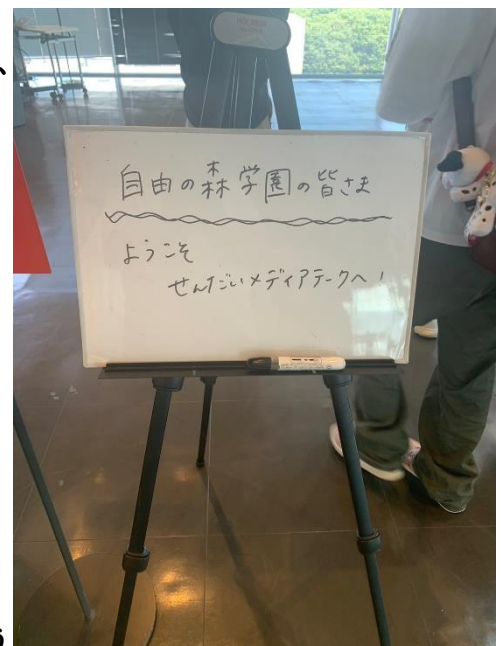 自由の森学園の皆さま
ようこそ
せんだいメディアテークへ!